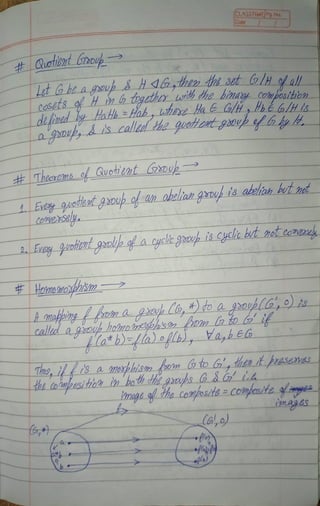 CLASSTIME Pg. No.
Date / /
# Quotient Group →
Let G be a group & H ◁ G, then the set G/H of all
cosets of H in G together with the binary composition
defined by HaHb = Hab, where Ha ∈ G/H, Hb ∈ G/H is
a group, & is called the quotient group of G by H.
# Theorems of Quotient Group →
1. Every quotient group of an abelian group is abelian but not
conversely.
2. Every quotient group of a cyclic group is cyclic but not conversely.
# Homomorphism →
A mapping f from a group (G, *) to a group (G', o) is
called a group homomorphism from G to G' if
f(a*b) = f(a) o f(b), ∀ a, b ∈ G
Thus, if f is a morphism from G to G', then it preserves
the composition in both the groups G & G' i.e.
image of the composite = composite of images
f
(G,*) (G',o)